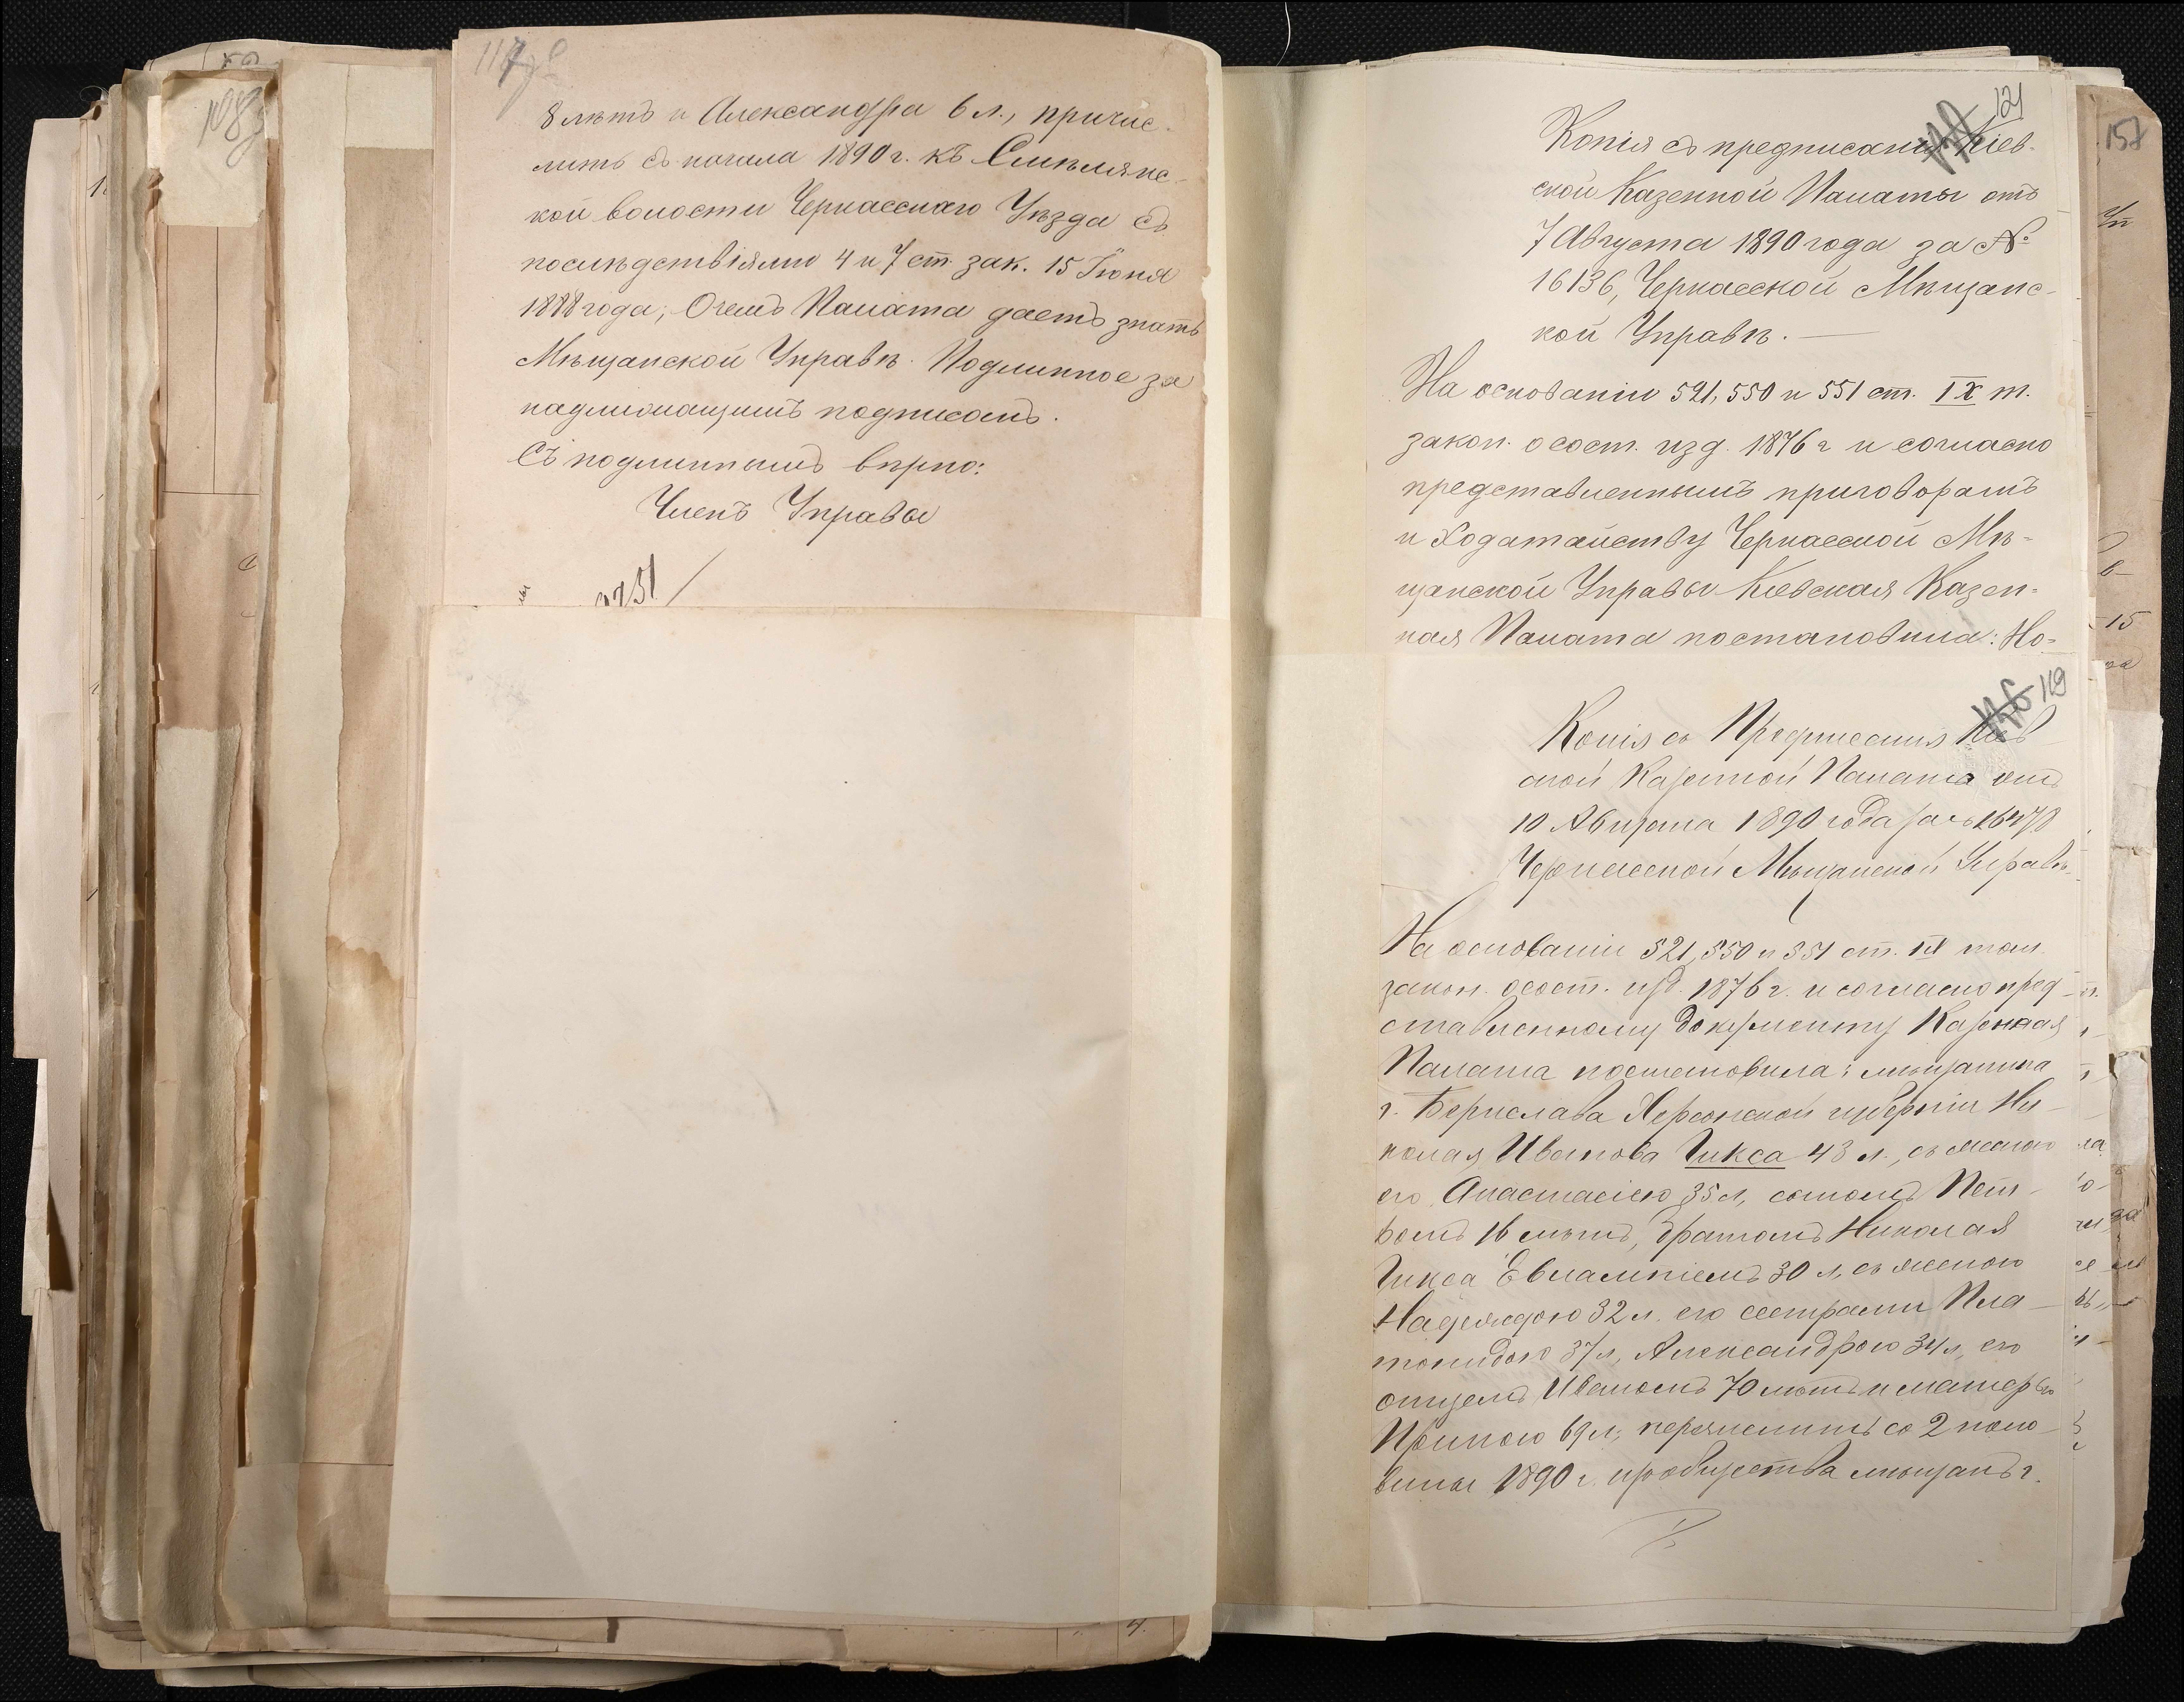 8 лѣтъ и Александра 6 л., причис-
лить съ начала 1890 г. къ Смѣлянс-
кой волости Черкасскаго Уѣзда съ
послѣдствіями 4 и 7 ст. зак. 15 Іюня
1888 года; О чемъ Палата даетъ знать
Мѣщанской Управѣ. Подлинное за
надлежащимъ подписомъ.
Съ подлиннымъ вѣрно:
Членъ Управы
121
Копія съ предписанія Кіев-
ской Казенной Палаты отъ
7 Августа 1890 года за №
16136, Черкасской Мѣщанс-
кой Управѣ.
На основаніи 521, 550 и 551 ст. IX т.
закон. о сост. изд. 1876 г и согласно
представленнымъ приговорамъ
и ходатайству Черкасской Мѣ-
щанской Управы Кіевская Казен-
ная Палата постановила: Но-
119
Копія съ Предписанія Кіев
ской Казенной Палаты отъ
10 Августа 1890 года за № 16478
Черкасской Мѣщанской Управѣ
На основаніи 521, 550 и 551 ст. IX том.
закон. о сост. изд. 1876 г. и согласно пред-
ставленному документу Казенная
Палата постановила: мѣщанина
г. Берислава Херсонской губерніи Ни-
колая Иванова Гикса 43 л., съ женою
его Анастасіею 35 л, сыномъ Пет-
ромъ 16 лѣтъ, братомъ Николая
Гикса Евлампіемъ 30 л, съ женою
Надеждою 32 л. его сестрами Пла-
тонидою 37 л, Александрою 34 л, его
отцемъ Иваномъ 70 лѣтъ и матерью
Ириною 69 л; перечислить со 2 поло-
вины 1890 г. изъ общества мѣщанъ г.
157
15